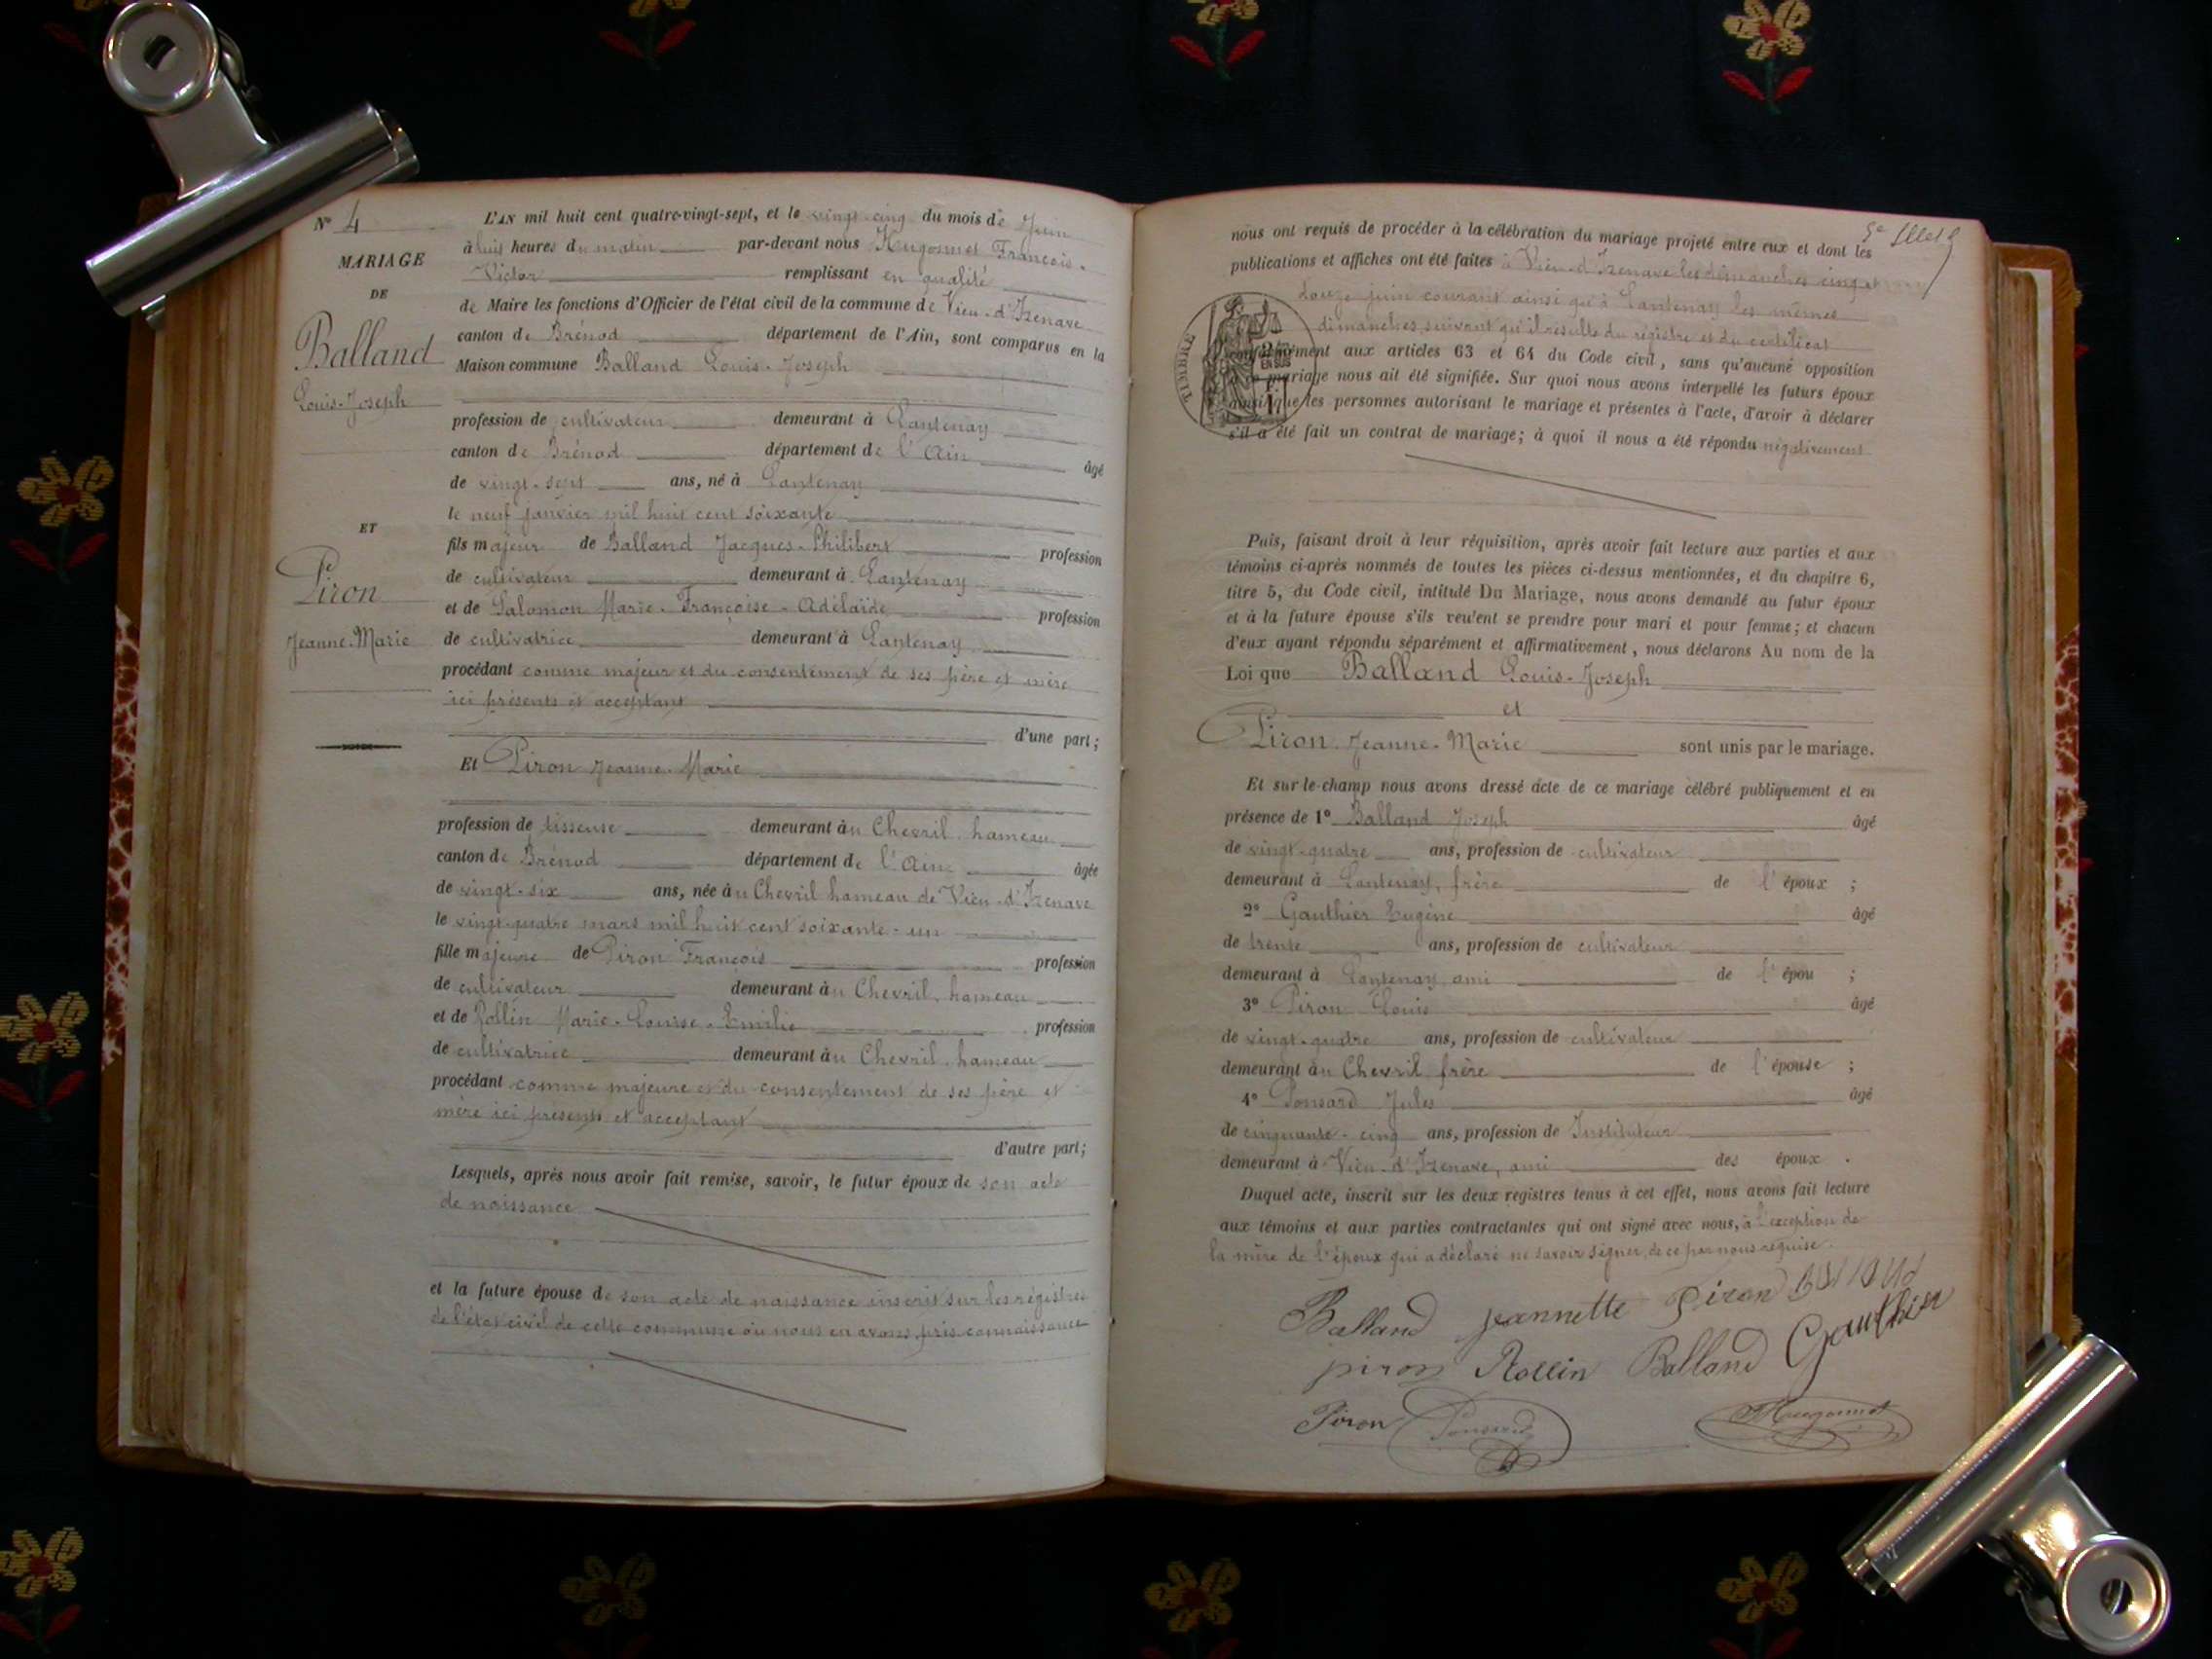 N° 4
MARIAGE
DE
Balland
Louis-Joseph
ET
Piron
Jeanne-Marie
L'AN mil huit cent quatre-vingt-sept, et le vingt-cinq du mois de Juin
à huit heures du matin par-devant nous Hugonnet François-
Victor remplissant en qualité
de Maire les fonctions d'Officier de l'état civil de la commune de Vieu-d'Izenave
canton de Brénod département de l'Ain, sont comparus en la
Maison commune Balland Louis-Joseph
profession de cultivateur demeurant à Lantenay
canton de Brénod département de l'Ain âgé
de vingt-sept ans, né à Lantenay
le neuf janvier mil huit cent soixante
fils majeur de Balland Jacques-Philibert profession
de cultivateur demeurant à Lantenay
et de Salomon Marie-Françoise-Adélaïde profession
de cultivatrice demeurant à Lantenay
procédant comme majeur et du consentement de ses père et mère
ici présents et acceptant
d'une part;
Et Piron Jeanne-Marie
profession de tisseuse demeurant àu Chevril, hameau
canton de Brénod département de l'Ain âgée
de vingt-six ans, née àu Chevril hameau de Vieu-d'Izenave
le vingt-quatre mars mil huit cent soixante-un
fille majeure de Piron François profession
de cultivateur demeurant àu Chevril, hameau
et de Rollin Marie-Louise-Emilie profession
de cultivatrice demeurant àu Chevril, hameau
procédant comme majeure et du consentement de ses père et
mère ici présents et acceptant
d'autre part;
Lesquels, après nous avoir fait remise, savoir, le futur époux de son acte
de naissance
et la future épouse de son acte de naissance inscrit sur les régistres
de l'état civil de cette commune où nous en avons pris connaissance
nous ont requis de procéder à la célébration du mariage projeté entre eux et dont les
publications et affiches ont été faites à Vieu-d'Izenave les dimanches cinq et
douze juin courant ainsi qu'à Lantenay les mêmes
dimanches, suivant qu'il résulte du régistre et du certificat
TIMBRE
conformément aux articles 63 et 64 du Code civil, sans qu'aucune opposition
mariage nous ait été signifiée. Sur quoi nous avons interpellé les futurs époux
ainsi que les personnes autorisant le mariage et présentes à l'acte, d'avoir à déclarer
s'il a été fait un contrat de mariage; à quoi il nous a été répondu négativement
Puis, faisant droit à leur réquisition, après avoir fait lecture aux parties et aux
témoins ci-après nommés de toutes les pièces ci-dessus mentionnées, et du chapitre 6,
titre 5, du Code civil, intitulé Du Mariage, nous avons demandé au futur époux
et à la future épouse s'ils veulent se prendre pour mari et pour femme; et chacun
d'eux ayant répondu séparément et affirmativement, nous déclarons Au nom de la
Loi que Balland Louis-Joseph
et
Piron Jeanne-Marie sont unis par le mariage.
Et sur-le-champ nous avons dressé acte de ce mariage célébré publiquement et en
présence de 1° Balland Joseph âgé
de vingt-quatre ans, profession de cultivateur
demeurant à Lantenay, frère de l'époux ;
2° Gauthier Eugène âgé
de trente ans, profession de cultivateur
demeurant à Lantenay, ami de l'épou ;
3° Piron Louis âgé
de vingt-quatre ans, profession de cultivateur
demeurant àu Chevril, frère de l'épouse ;
4° Ponsard Jules âgé
de cinquante-cinq ans, profession de Instituteur
demeurant à Vieu-d'Izenave, ami des époux .
Duquel acte, inscrit sur les deux registres tenus à cet effet, nous avons fait lecture
aux témoins et aux parties contractantes qui ont signé avec nous, à l'exception de
la mère de l'époux qui a déclaré ne savoir signer, de ce par nous requise.
Balland Jeannette Piron Balland
piron Rollin Balland Gauthier
Piron Ponsard Hugonnet